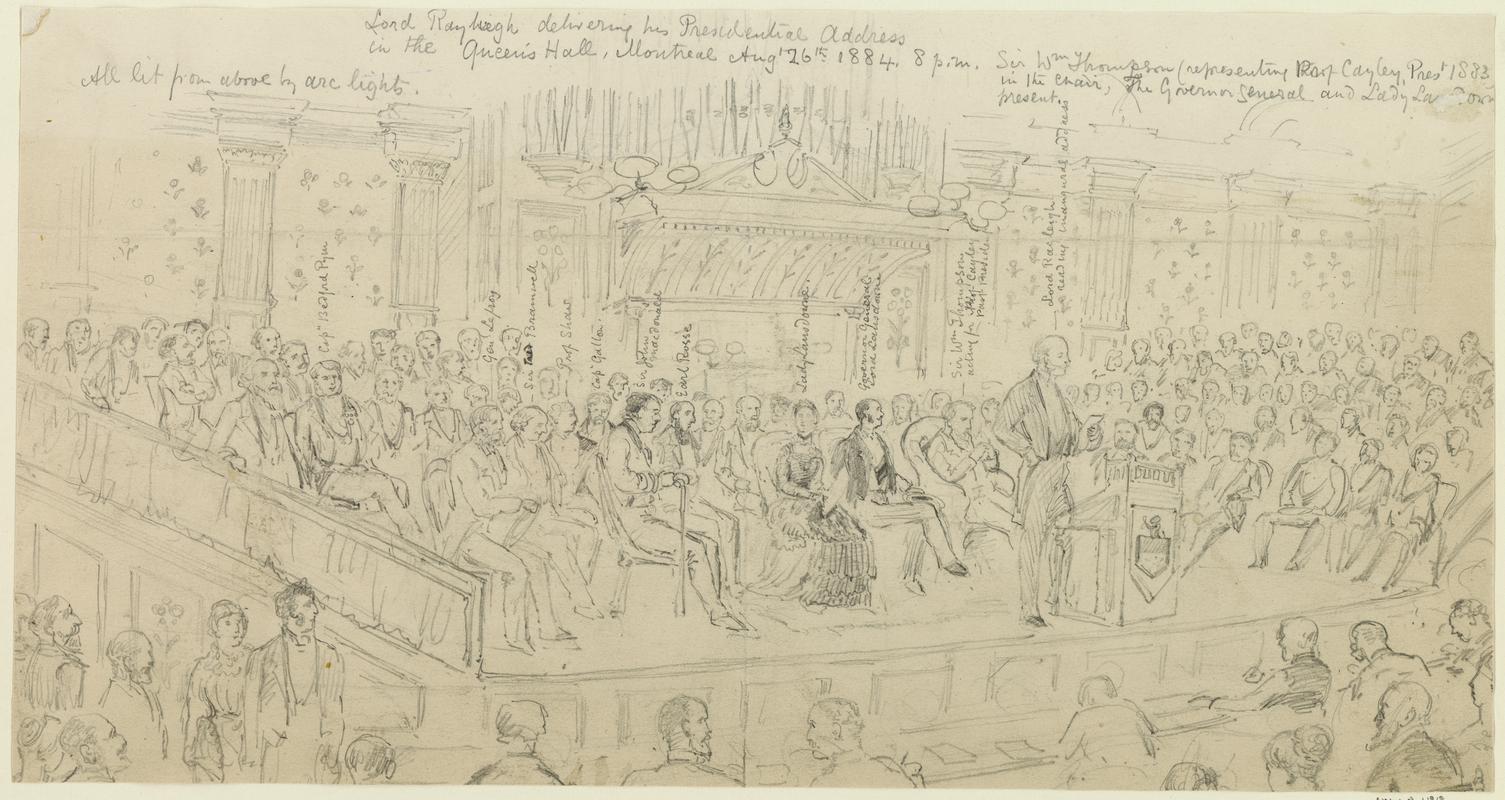 Lord Rayleigh delivering his Presidential Address
in the Queen's Hall, Montreal Augt 26th 1884. 8 p.m.
Sir Wm Thompson (representing Prof Cayley, Prest 1883
in the chair, The Governor General and Lady Lansdown
present.
All lit from above by arc lights.
Capn Bedford Pym
Gen Lefroy
Sir Bramwell
Prof Shaw
Cap Galton.
Sir John
Macdonald
Earl Rosse
Lady Lansdowne.
Governor General
Lord Lansdowne
Sir Wm Thompson
acting for Prof Cayley
Past President
Lord Rayleigh
reading inaugural address